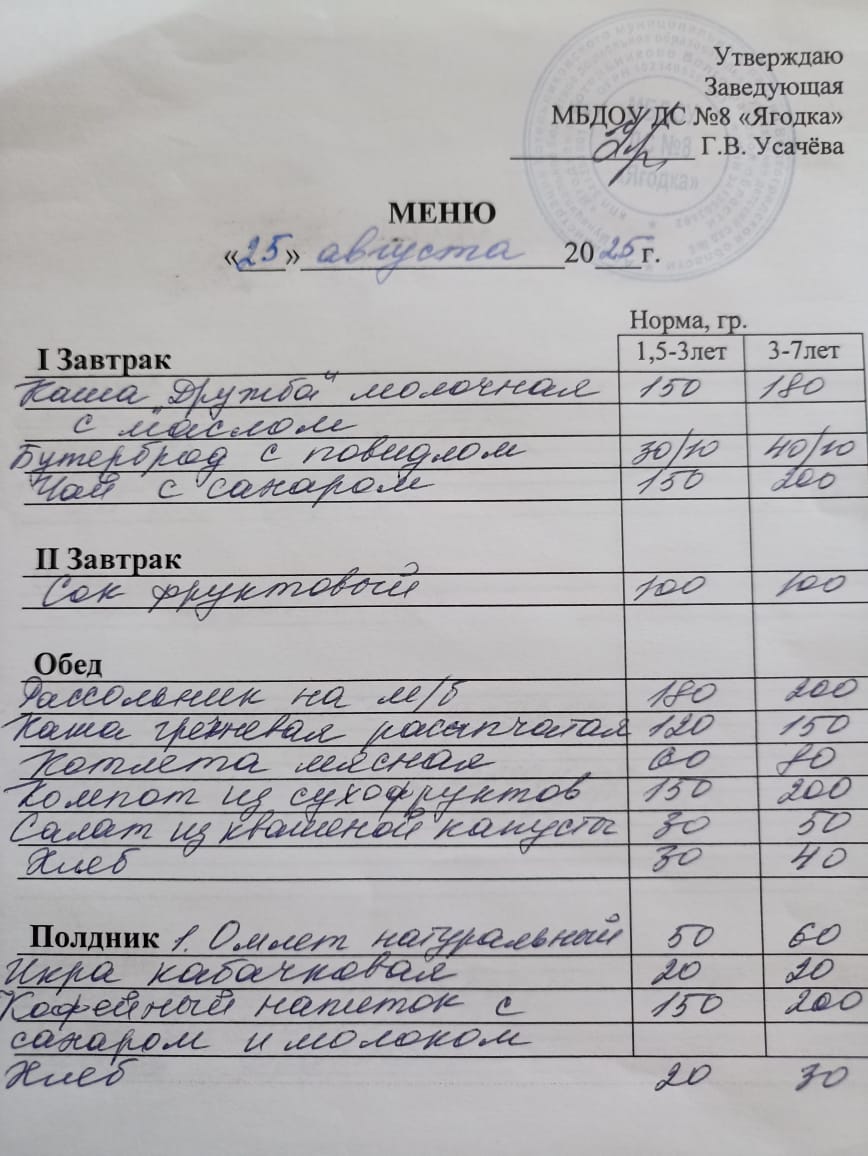 Утверждаю
Заведующая
МБДОУ ДС №8 «Ягодка»
Г.В. Усачёва
МЕНЮ
«25» августа 2025 г.
Норма, гр.
I Завтрак 1,5-3лет 3-7лет
Каша "Дружба" молочная 150 180
с маслом
Бутерброд с повидлом 30/10 40/10
Чай с сахаром 150 200
II Завтрак
Сок фруктовый 100 100
Обед
Рассольник на м/б 180 200
Каша гречневая рассыпчатая 120 150
Котлета мясная 60 80
Компот из сухофруктов 150 200
Салат из квашеной капусты 30 50
Хлеб 30 40
Полдник 1. Омлет натуральный 50 60
Икра кабачковая 20 20
Кофейный напиток с 150 200
сахаром и молоком
Хлеб 20 30